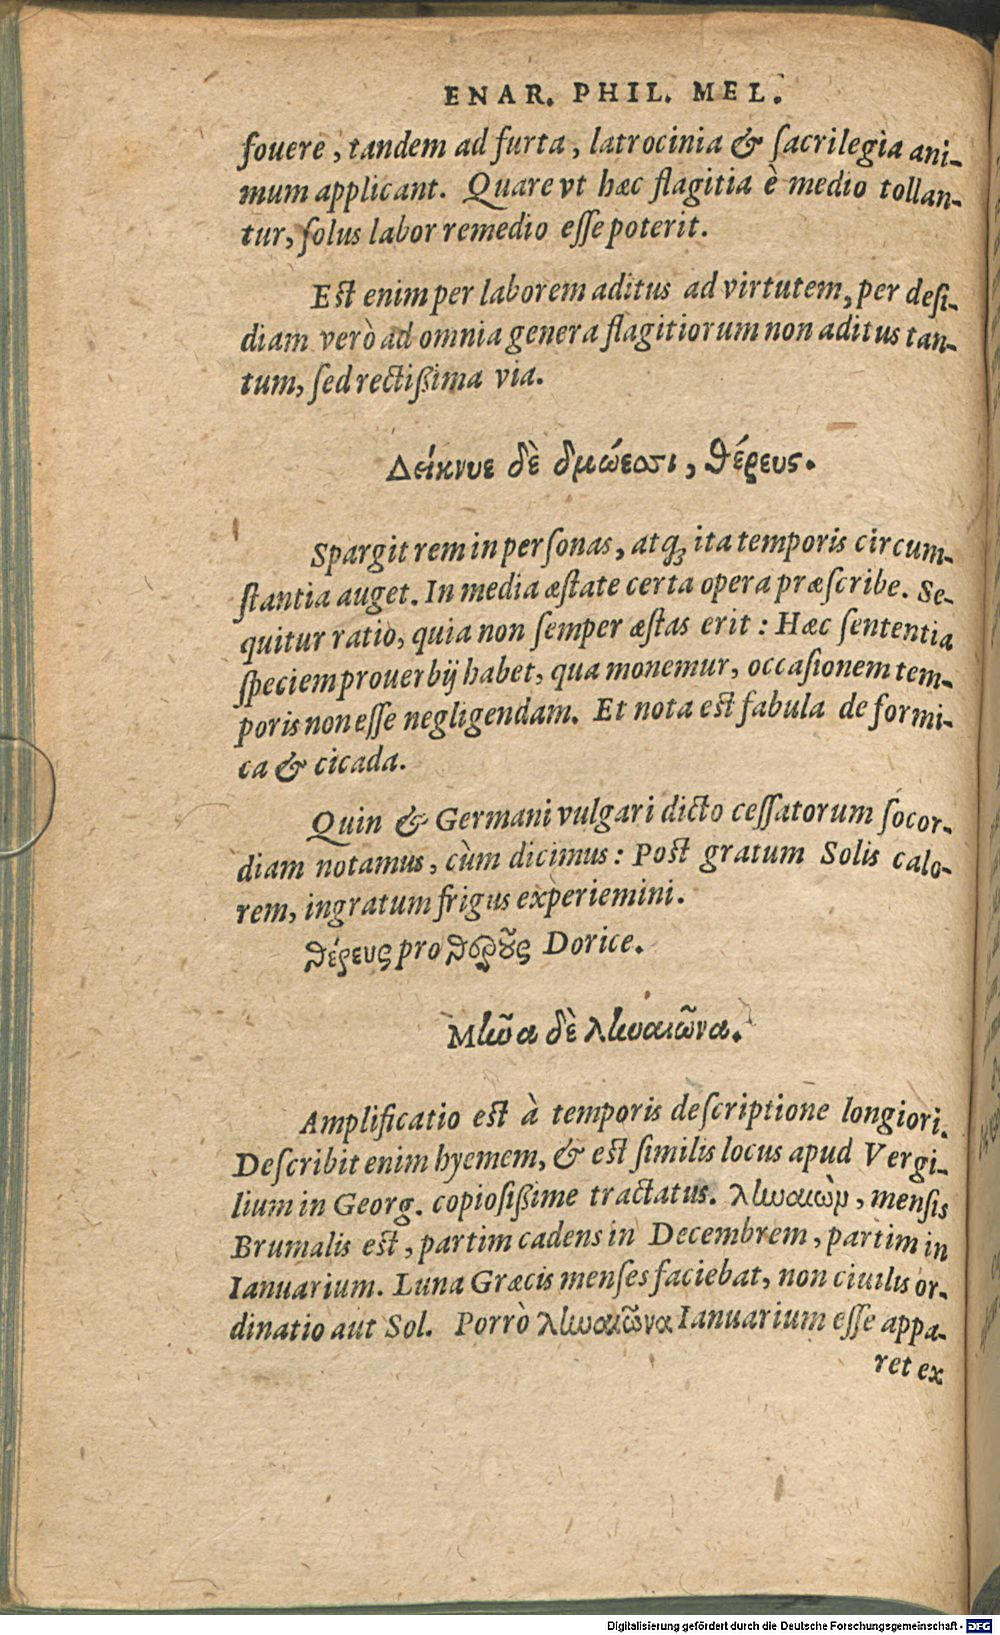 ENAR. PHIL. MEL.
fouere, tandem ad furta, latrocinia & ſacrilegia ani-
mum applicant. Quare vt hæc flagitia è medio tollan-
tur, ſolus labor remedio eſſe poterit.
Eſt enim per laborem aditus ad virtutem, per deſi-
diam verò ad omnia genera flagitiorum non aditus tan-
tum, ſed rectißima via.
Δείκνυε δὲ δμώεσσι, θέρευς.
Spargit rem in perſonas, atq; ita temporis circum-
ſtantia auget. In media æſtate certa opera præſcribe. Se-
quitur ratio, quia non ſemper æſtas erit: Hæc ſententia
ſpeciem prouerbij habet, qua monemur, occaſionem tem-
poris non eſſe negligendam. Et nota eſt fabula de formi-
ca & cicada.
Quin & Germani vulgari dicto ceſſatorum ſocor-
diam notamus, cùm dicimus: Poſt gratum Solis calo-
rem, ingratum frigus experiemini.
θέρευς pro θέρους Dorice.
Μῆνα δὲ ληναιῶνα.
Amplificatio eſt à temporis deſcriptione longiori.
Deſcribit enim hyemem, & eſt ſimilis locus apud Vergi-
lium in Georg. copioſißime tractatus. ληναιὼν, menſis
Brumalis eſt, partim cadens in Decembrem, partim in
Ianuarium. Luna Græcis menſes faciebat, non ciuilis or-
dinatio aut Sol. Porrò ληναιῶνα Ianuarium eſſe appa-
ret ex
Digitalisierung gefördert durch die Deutsche Forschungsgemeinschaft - DFG